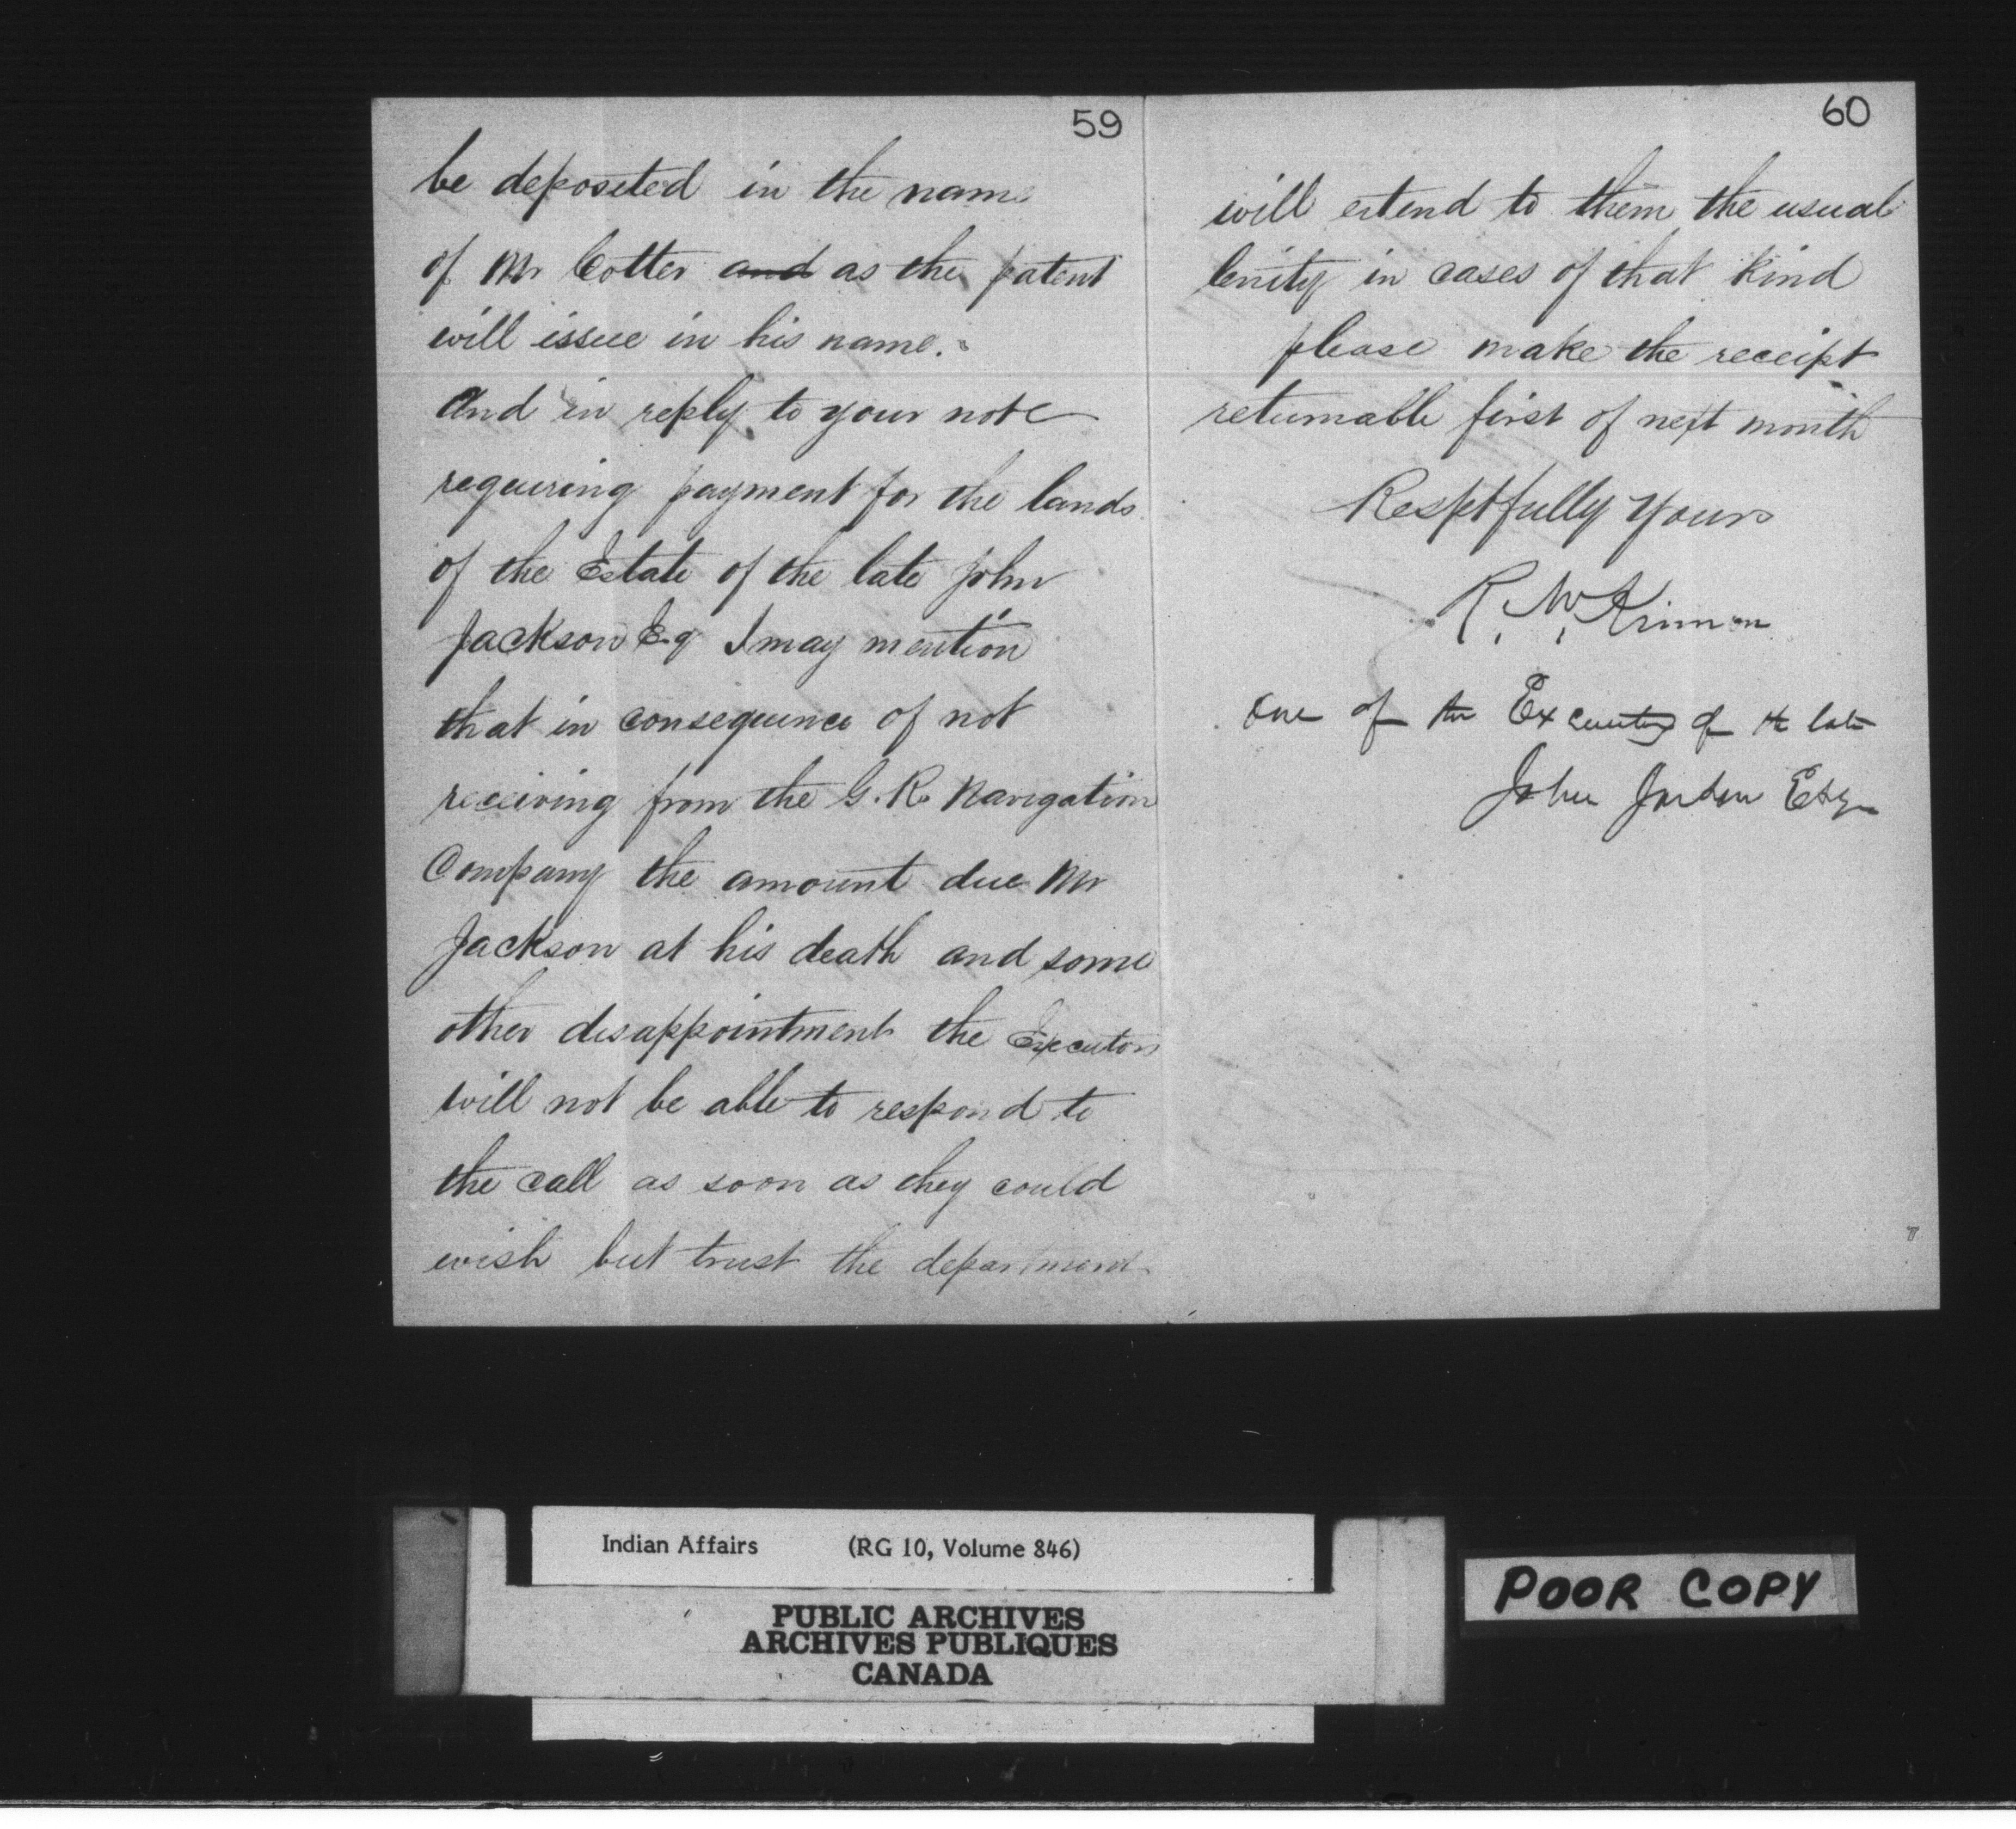 59
be deposited in the name
of Mr Cotter and as the patent
will issue in his name.
And in reply to your note
requiring payment for the lands
of the Estate of the late John
Jackson Eq I may mention
that in consequence of not
receiving from the G. R. Navigation
Company the amount due Mr
Jackson at his death and some
other disappointment the Executors
will not be able to respond to
the call as soon as they could
wish but trust the department
60
will extend to them the usual
lenity in cases of that kind
please make the receipt
returnable first of next month
Resptfully Yours
R. McKinnon
one of the Executors of the late
John Esq
Indian Affairs (RG 10, Volume 846)
PUBLIC ARCHIVES
ARCHIVES PUBLIQUES
CANADA
POOR COPY